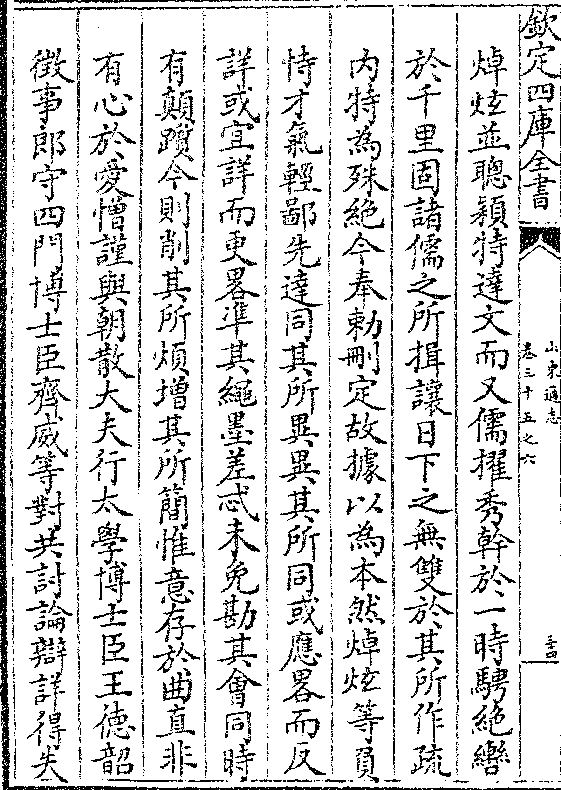 欽定四庫全書
山東通志
卷三十五之六
焯炫並聰穎特達文而又儒擢秀幹於一時騁絶轡
於千里固諸儒之所揖讓日下之無雙於其所作疏
内特為殊絶今奉勅刪定故據以為本然焯炫等負
恃才氣輕鄙先達同其所異異其所同或應畧而反
詳或宜詳而更畧準其繩墨差忒未免勘其會同時
有顛躓今則削其所煩增其所簡惟意存於曲直非
有心於愛憎謹與朝散大夫行太學博士臣王徳韶
徴事郎守四門博士臣齊威等對共討論辯詳得失